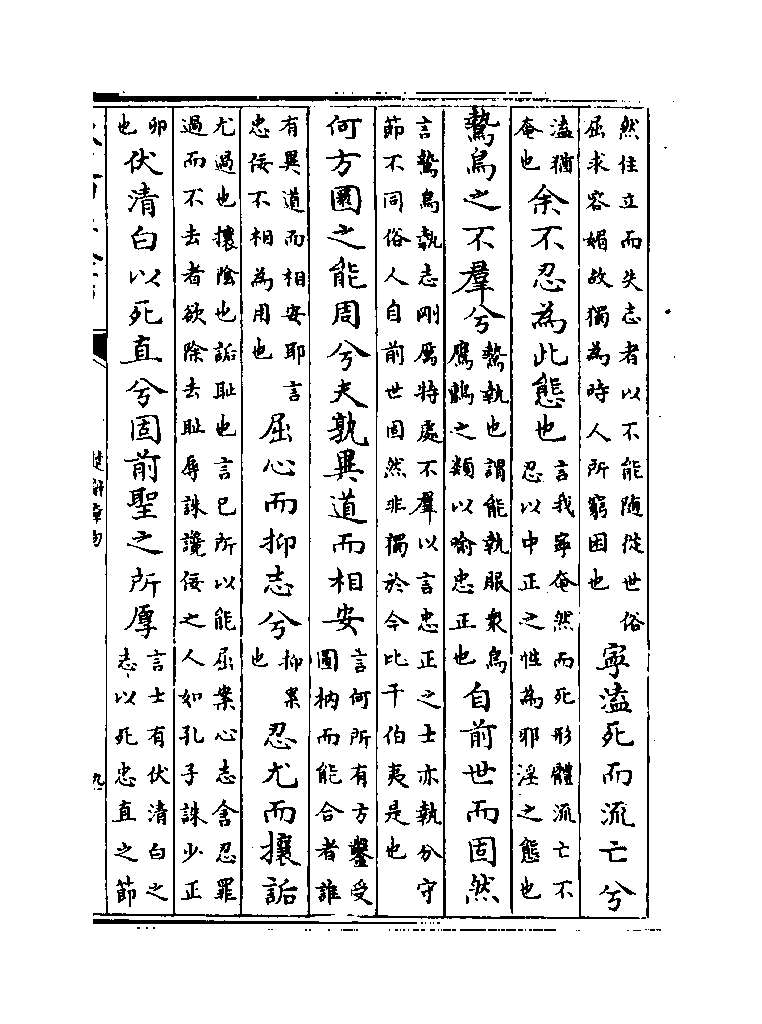 然住立而失志者以不能随從世俗
屈求容媚故獨為時人所窮困也
寧溘死而流亡兮
溘猶
奄也
余不忍為此態也
言我寧奄然而死形體流亡不
忍以中正之性為邪淫之態也
鷙鳥之不羣兮
鷙執也謂能執服衆鳥
鷹鸇之類以喻忠正也
自前世而固然
言鷙鳥執志剛厲特處不羣以言忠正之士亦執分守
節不同俗人自前世固然非獨於今比干伯夷是也
何方圜之能周兮夫孰異道而相安
言何所有方鑿受
圜枘而能合者誰
有異道而相安耶言
忠佞不相為用也
屈心而抑志兮
抑案
也
忍尤而攘詬
尤過也攘除也詬耻也言已所以能屈案心志含忍罪
過而不去者欲除去耻辱誅讒佞之人如孔子誅少正
卯
也
伏清白以死直兮固前聖之所厚
言士有伏清白之
志以死忠直之節
楚辭章句
九